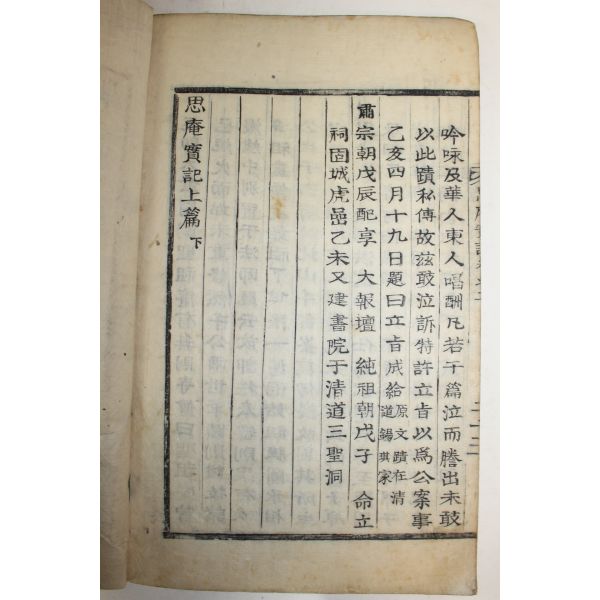 吟咏及華人東人唱酬凡若干篇泣而謄出未敢
以此蹟私傳故玆敢泣訴特許立旨以爲公案事
乙亥四月十九日題曰立旨成給原文蹟在清道錫琪家
肅宗朝戊辰配享 大報壇 純祖朝戊子 命立
祠固城虎嵒乙未又建書院于清道三聖洞
思庵實記上篇下